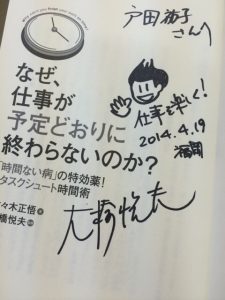 戸田
さんへ
なぜ、
仕事が
予定どおりに
終わらないのか?
仕事を楽しく!
2014.4.19
福岡
「時間ない病」の特効薬!
タスクシュート時間術
々木正悟 著
橋悦夫 監
大橋悦夫